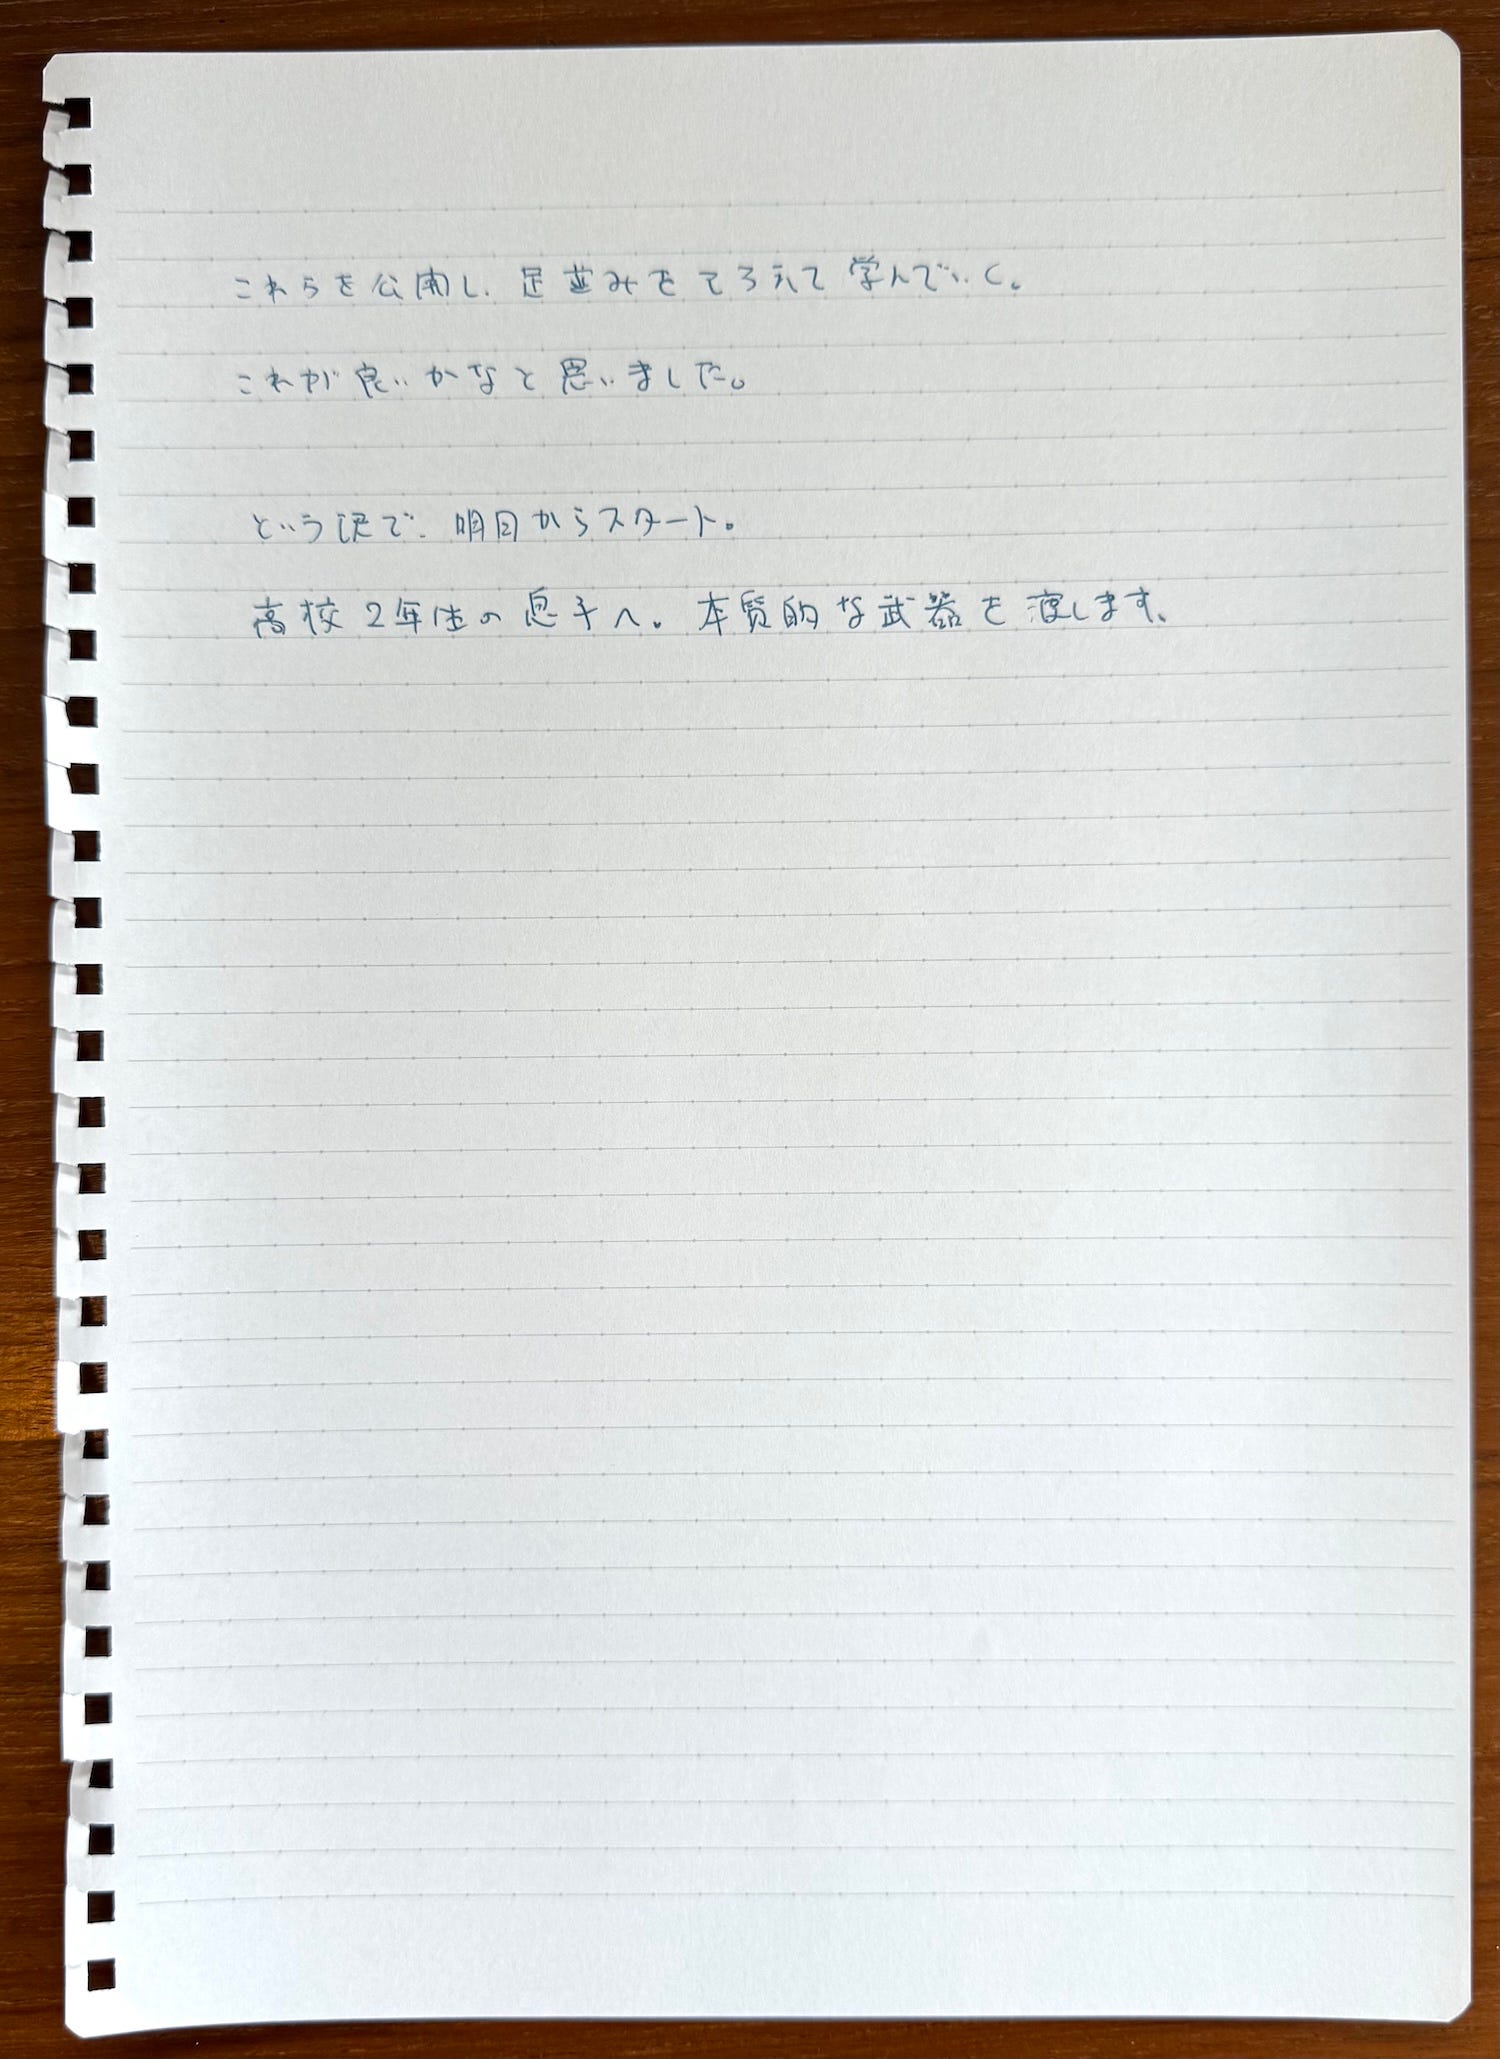 これらを公開し、足並みをそろえて学んでいく。
これが良いかなと思いました。
という訳で、明日からスタート。
高校2年生の息子へ。本質的な武器を渡します。